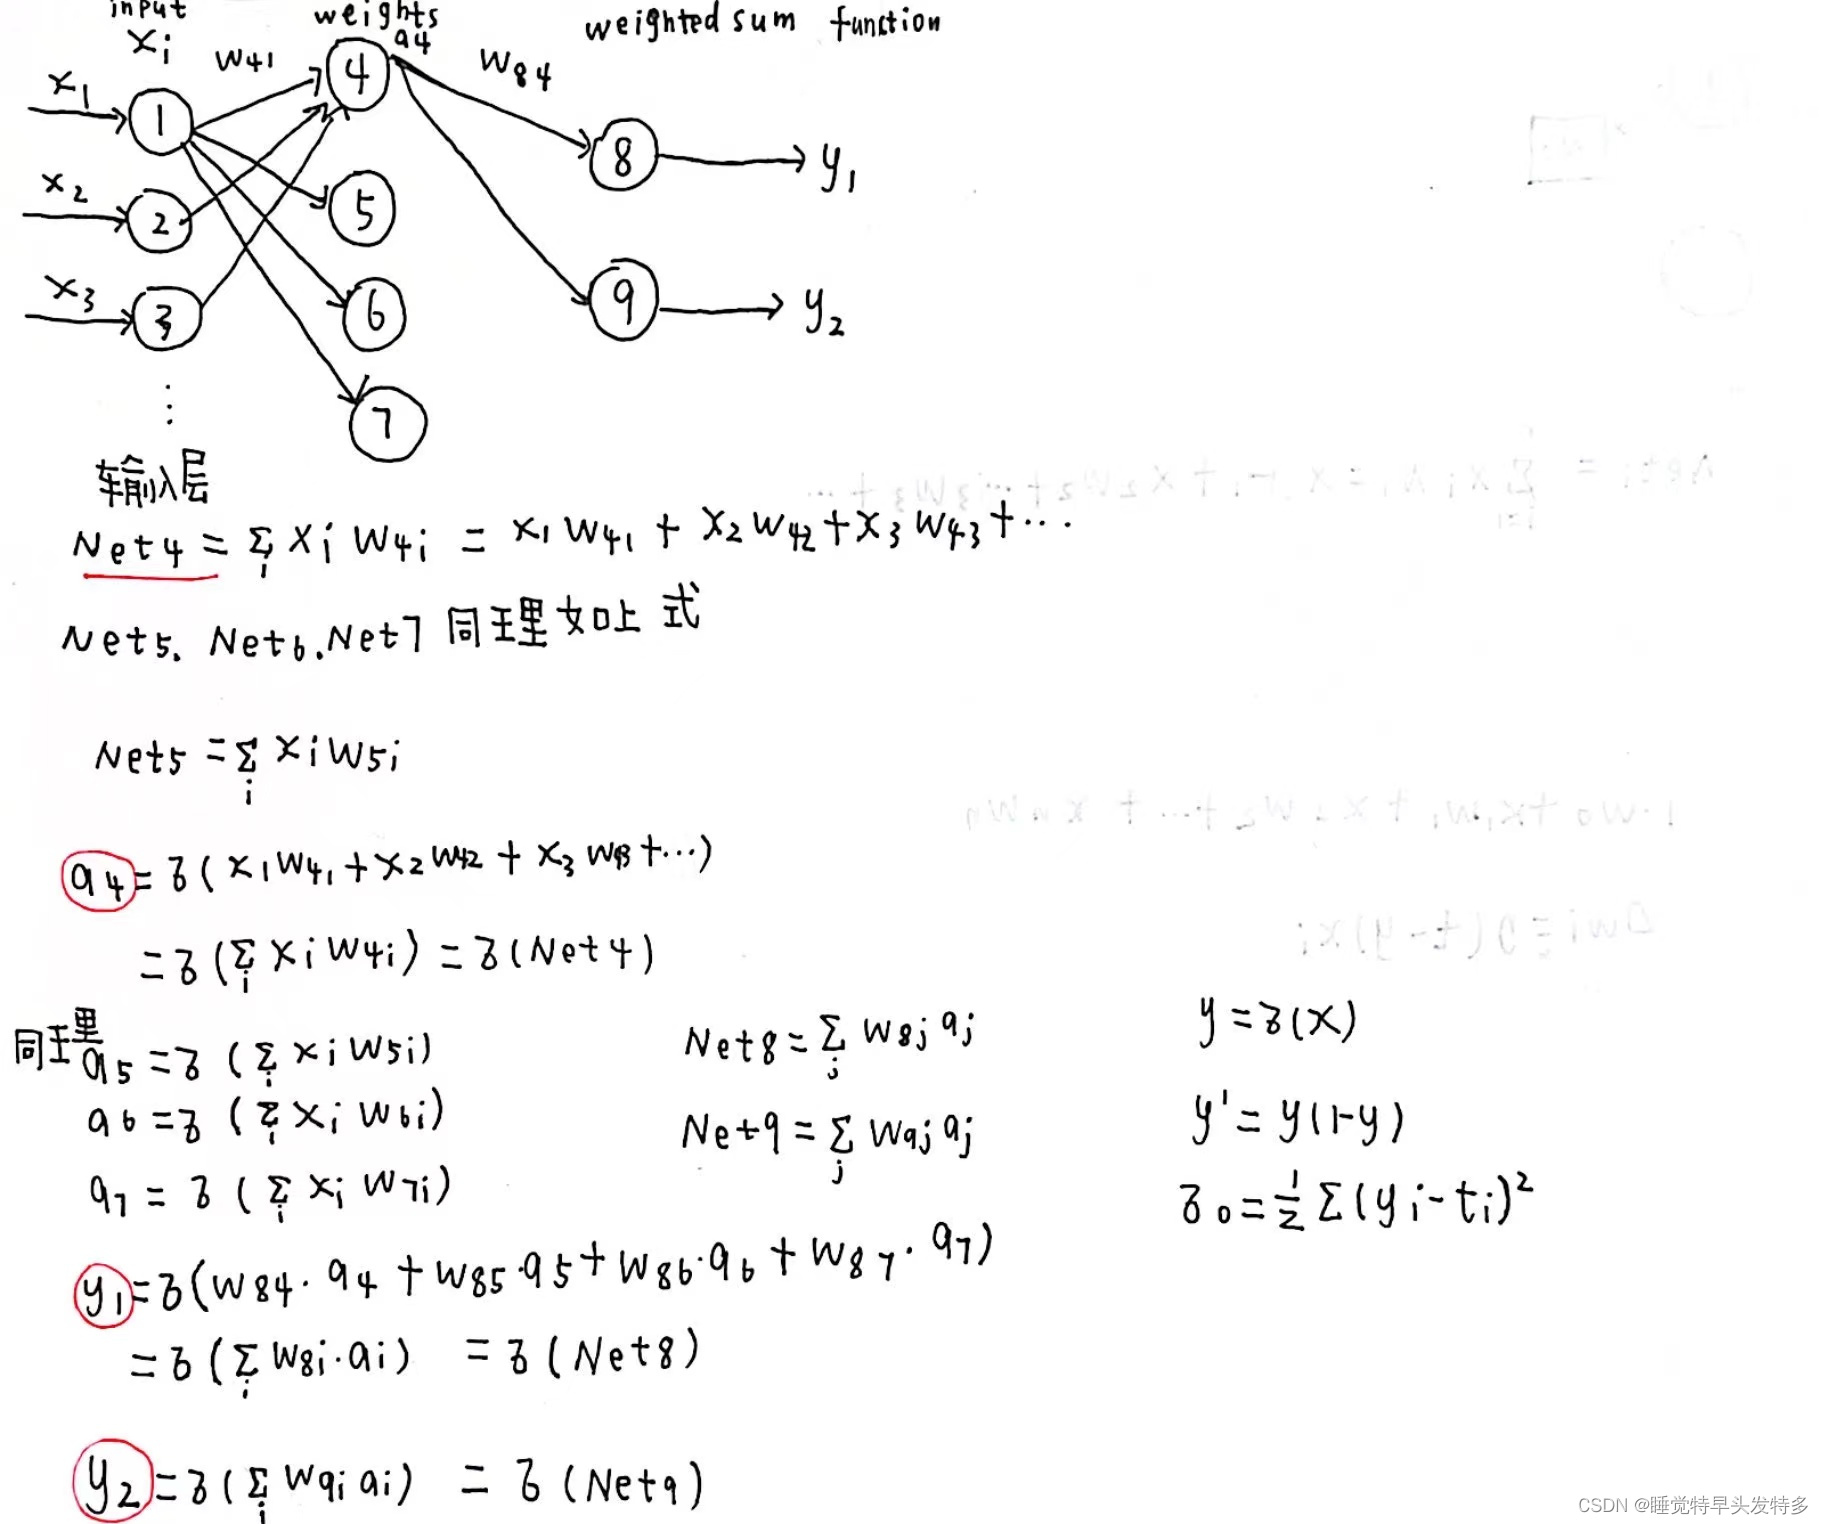 input weights weighted sum function
xi w41 a4 w84
x1 1 4
8 y1
x2 2 5
x3 3 6 9 y2
⋮
7
输入层
Net4 = Σi xi w4i = x1 w41 + x2 w42 + x3 w43 + ...
Net5、Net6、Net7 同理如上式
Net5 = Σi xi w5i
a4 = δ(x1 w41 + x2 w42 + x3 w43 + ...)
= δ(Σi xi w4i) = δ(Net4)
同理
a5 = δ(Σi xi w5i)
a6 = δ(Σi xi w6i)
a7 = δ(Σi xi w7i)
Net8 = Σj w8j aj
Net9 = Σj w9j aj
y = δ(x)
y' = y(1-y)
δ0 = 1/2 Σ(yi - ti)²
y1 = δ(w84·a4 + w85·a5 + w86·a6 + w87·a7)
= δ(Σi w8i·ai) = δ(Net8)
y2 = δ(Σi w9i ai) = δ(Net9)
CSDN @睡觉特早头发特多